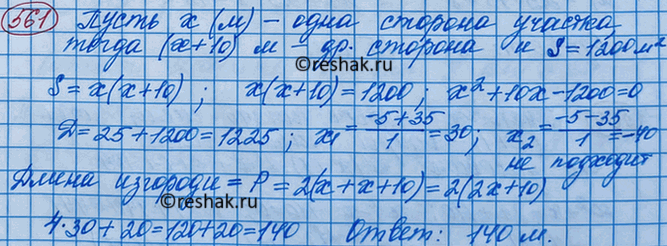 561 Пусть x (м) – одна сторона участка
тогда (x+10) м – др. сторона и S=1200м²
©reshak.ru
S=x(x+10); x(x+10)=1200; x²+10x-1200=0
D=25+1200=1225; x₁=(-5+35)/1=30; x₂=(-5-35)/1=-40
не подходит
Длина изгороди = P = 2(x+x+10)=2(2x+10)
4·30+20=120+20=140 Ответ: 140 м.